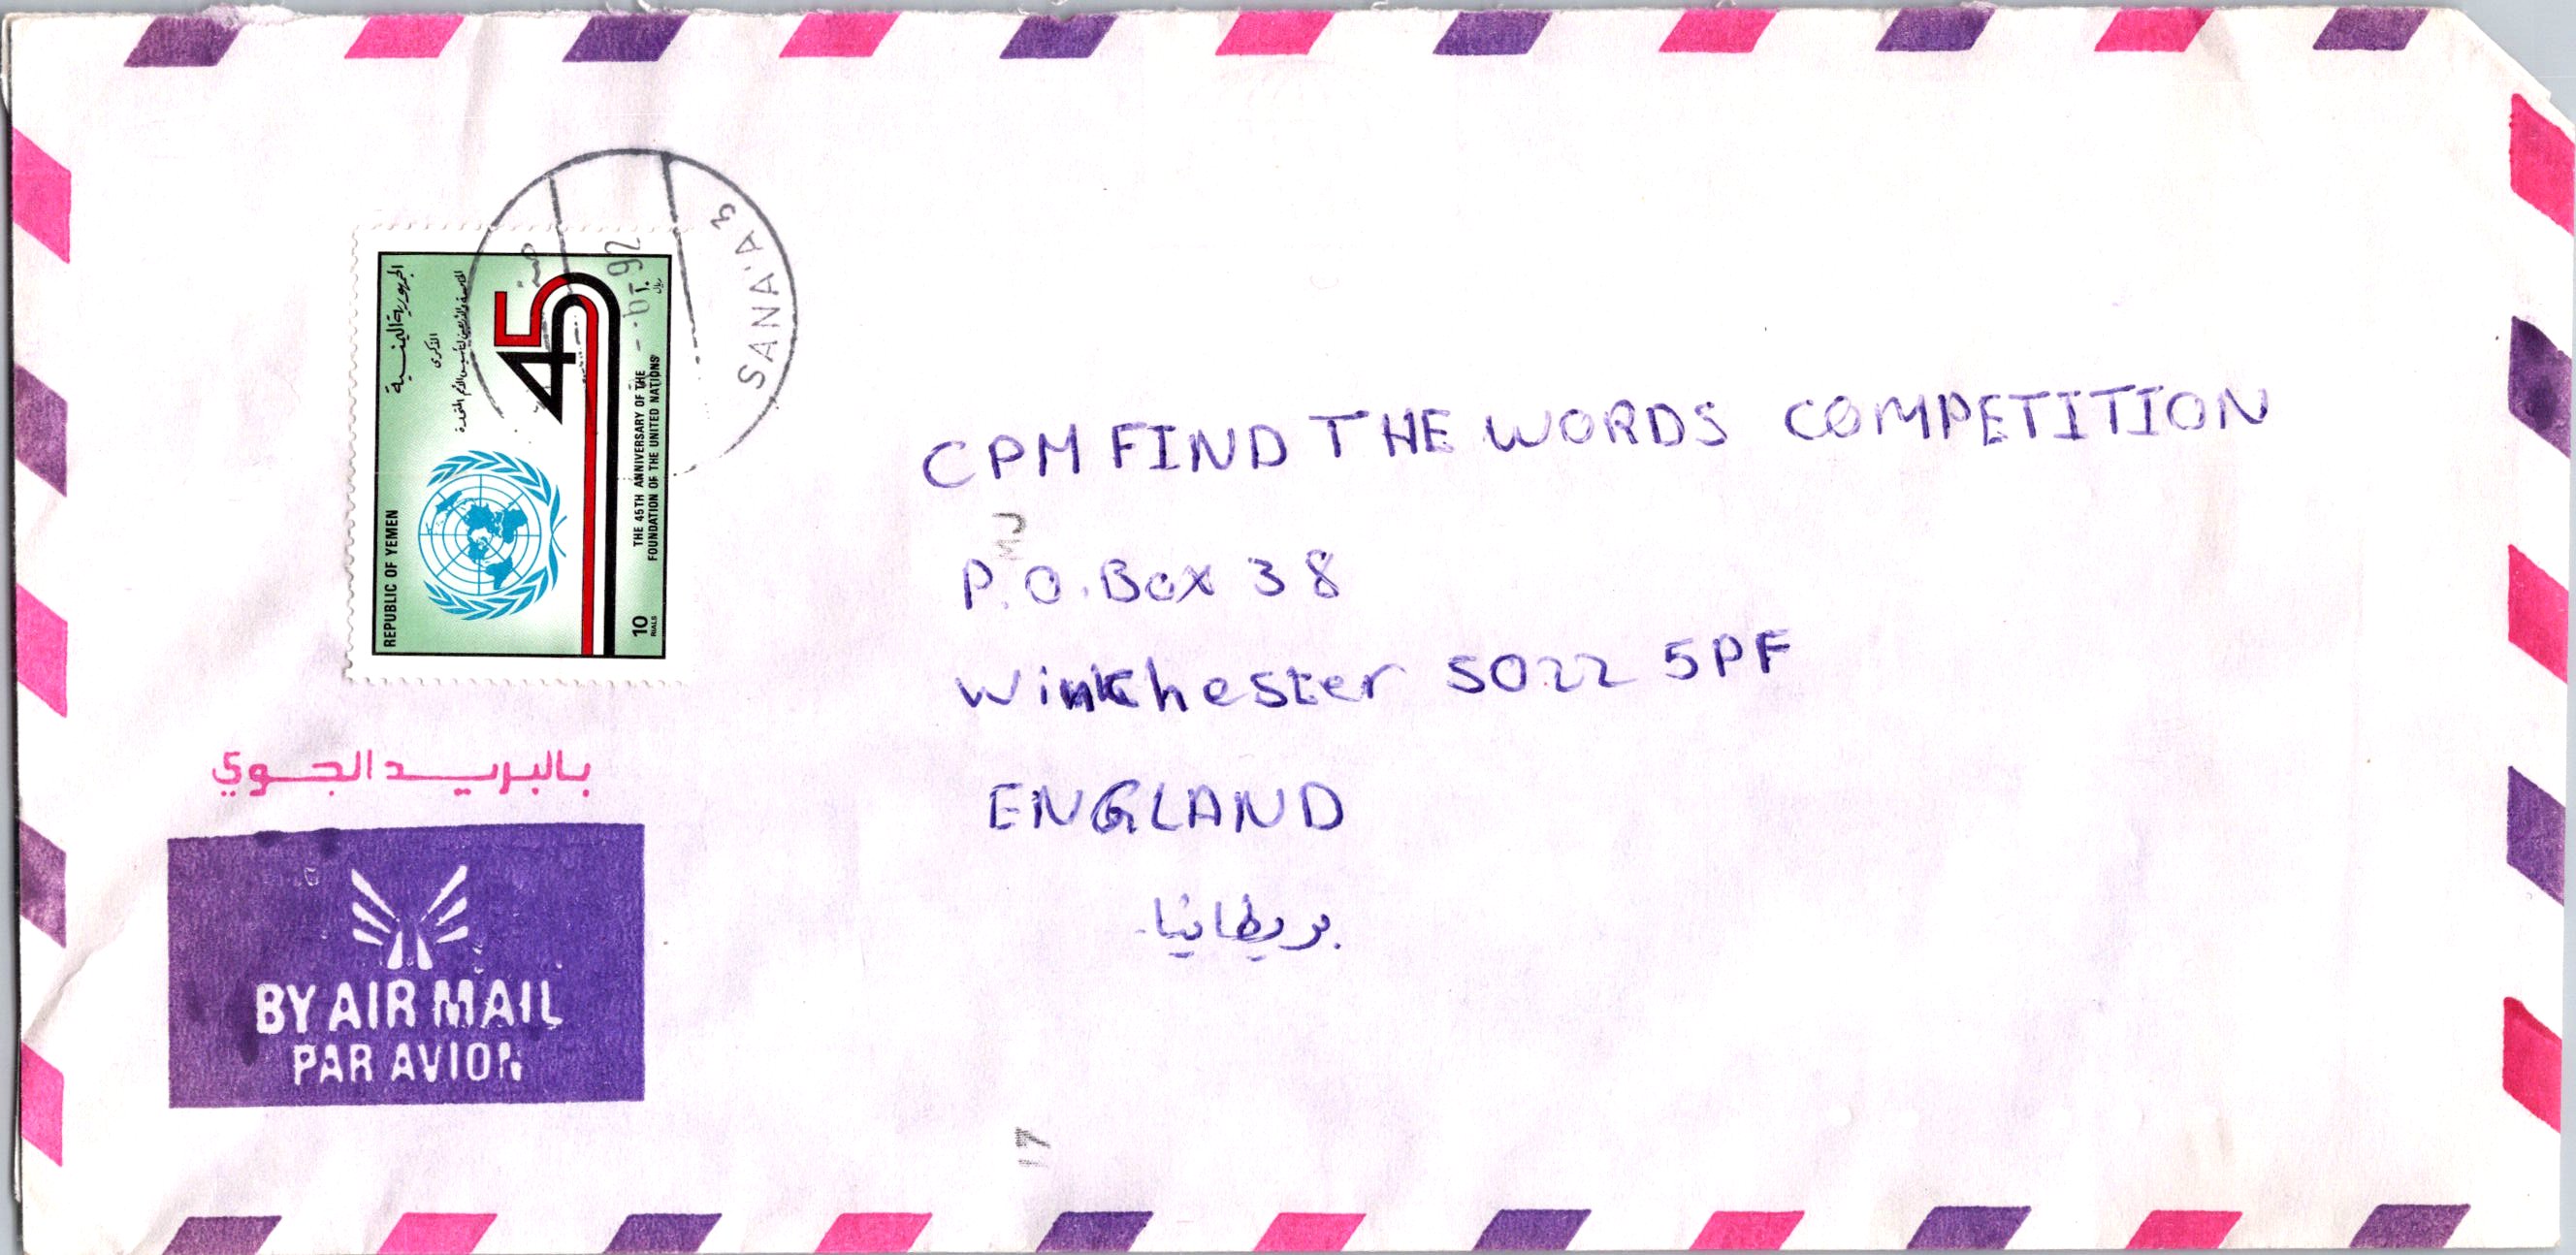 الجمهورية اليمنية
الذكرى
الخامسة والأربعين لتأسيس الأمم المتحدة
45
REPUBLIC OF YEMEN
THE 45TH ANNIVERSARY OF THE
FOUNDATION OF THE UNITED NATIONS
10
RIALS
ريال
SANA'A 3
92
CPM FIND THE WORDS COMPETITION
P.O.Box 38
Winkchester SO22 5PF
ENGLAND
بريطانيا
بالبريد الجوي
BY AIR MAIL
PAR AVION
17